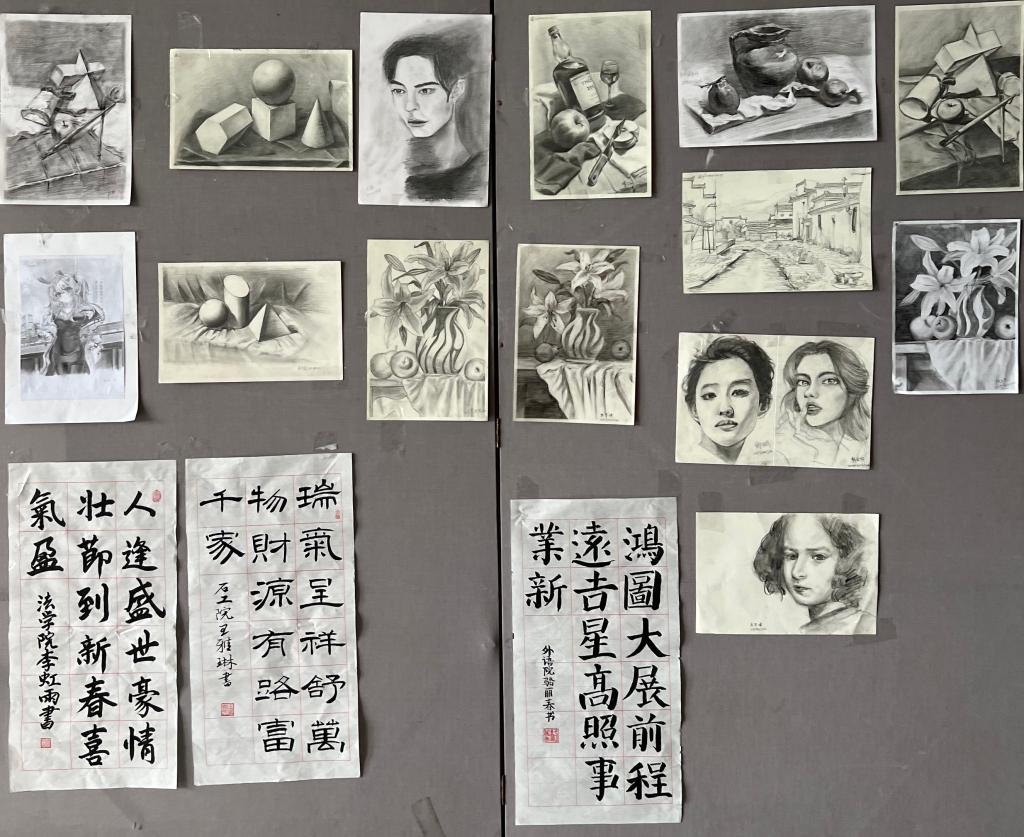 人逢盛世豪情
壯節到新春喜
氣盈
法学院李虹雨書
瑞氣呈祥舒萬
物財源有路富
千家
石工院王雅琳書
鴻圖大展前程
遠吉星髙照事
業新
外语院骆丽春书